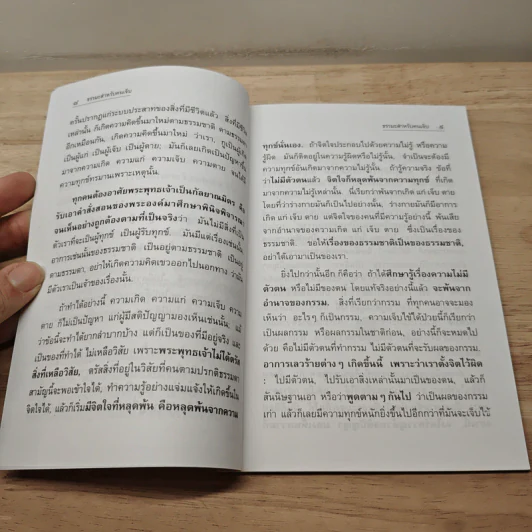 ๔ ธรรมะสำหรับคนเจ็บ
ครั้นปรากฏแก่ระบบประสาทของสิ่งที่มีชีวิตแล้ว สิ่งที่มีชีวิต
เหล่านั้น ก็เกิดความคิดขึ้นมาใหม่ตามธรรมชาติ ตามธรรมชาติ
อีกเหมือนกัน, เกิดความคิดขึ้นมาใหม่ ว่าเรา, กูเป็นผู้เกิด
เป็นผู้แก่ เป็นผู้เจ็บ เป็นผู้ตาย; มันก็เลยเกิดเป็นปัญหาขึ้น
มาจากความเกิด ความแก่ ความเจ็บ ความตาย จนได้รับ
ความทุกข์ทรมานเพราะเหตุนั้น.
ทุกคนต้องอาศัยพระพุทธเจ้าเป็นกัลยาณมิตร คือ
รับเอาคำสั่งสอนของพระองค์มาศึกษาพินิจพิจารณา
จนเห็นอย่างถูกต้องตามที่เป็นจริงว่า มันไม่มีสิ่งที่เป็น
ตัวเราที่จะเป็นผู้ทุกข์ เป็นผู้รับทุกข์. มันมีแต่เรื่องเช่นนั้น
อาการเช่นนั้นของธรรมชาติ เป็นอยู่ตามธรรมชาติ เป็นอยู่
ตามธรรมดา, อย่าให้เกิดความคิดเขวออกไปนอกทาง ว่ามัน
มีเราเป็นเจ้าของเรื่องนั้น.
ถ้าทำได้อย่างนี้ ความเกิด ความแก่ ความเจ็บ ความ
ตาย ก็ไม่เป็นปัญหา แก่ผู้มีสติปัญญามองเห็นเช่นนั้น; แม้
ว่าข้อนี้จะทำได้ยากลำบากบ้าง แต่ก็เป็นของที่มีอยู่จริง และ
เป็นของที่ทำได้ ไม่เหลือวิสัย เพราะพระพุทธเจ้าไม่ได้ตรัส
สิ่งที่เหลือวิสัย, ตรัสสิ่งที่อยู่ในวิสัยที่คนตามปรกติธรรมดา
สามัญนี้จะพอเข้าใจได้, ทำความรู้อย่างแจ่มแจ้งให้เกิดขึ้นใน
จิตใจได้, แล้วก็เริ่มมีจิตใจที่หลุดพ้น คือหลุดพ้นจากความ
ธรรมะสำหรับคนเจ็บ ๕
ทุกข์นั่นเอง. ถ้าจิตใจประกอบไปด้วยความไม่รู้ หรือความ
รู้ผิด มันก็ติดอยู่ในความรู้ผิดหรือไม่รู้นั้น, จำเป็นจะต้องมี
ความทุกข์อันเกิดมาจากความไม่รู้นั้น. ถ้ารู้ความจริง ข้อที่
ว่าไม่มีตัวตนแล้ว จิตใจก็หลุดพ้นจากความทุกข์ ที่เกิด
มาจากความไม่รู้เหล่านั้น. นี่เรียกว่าพ้นจากเกิด แก่ เจ็บ ตาย
โดยที่ว่าร่างกายมันก็เป็นไปอย่างนั้น, ร่างกายมันก็มีอาการ
เกิด แก่ เจ็บ ตาย แต่จิตใจของคนที่มีความรู้อย่างนี้ พ้นเสีย
จากอำนาจของความเกิด แก่ เจ็บ ตาย ซึ่งเป็นเรื่องของ
ธรรมชาติ. ขอให้เรื่องของธรรมชาติเป็นของธรรมชาติ,
อย่าได้เอามาเป็นของเรา.
ยิ่งไปกว่านั้นอีก ก็คือว่า ถ้าได้ศึกษารู้เรื่องความไม่มี
ตัวตน หรือไม่มีของตน โดยแท้จริงอย่างนี้แล้ว จะพ้นจาก
อำนาจของกรรม. สิ่งที่เรียกว่ากรรม ที่ทุกคนอาจจะมอง
เห็นว่า อะไรๆ ก็เป็นกรรม, ความเจ็บไข้ได้ป่วยนี้ก็เรียกว่า
เป็นผลกรรม หรือผลกรรมในชาติก่อน, อย่างนี้ก็จะหมดไป
ด้วย คือไม่มีตัวตนที่ทำกรรม ไม่มีตัวตนที่จะรับผลของกรรม.
อาการเลวร้ายต่างๆ เกิดขึ้นนี้ เพราะว่าเราตั้งจิตไว้ผิด
: ไปมีตัวตน, ไปรับเอาสิ่งเหล่านั้นมาเป็นของตน, แล้วก็
สันนิษฐานเอา หรือว่าพูดตามๆ กันไป ว่าเป็นผลของกรรม
เก่า แล้วก็เลยมีความทุกข์หนักยิ่งขึ้นไปอีกกว่าที่มันจะเจ็บไข้